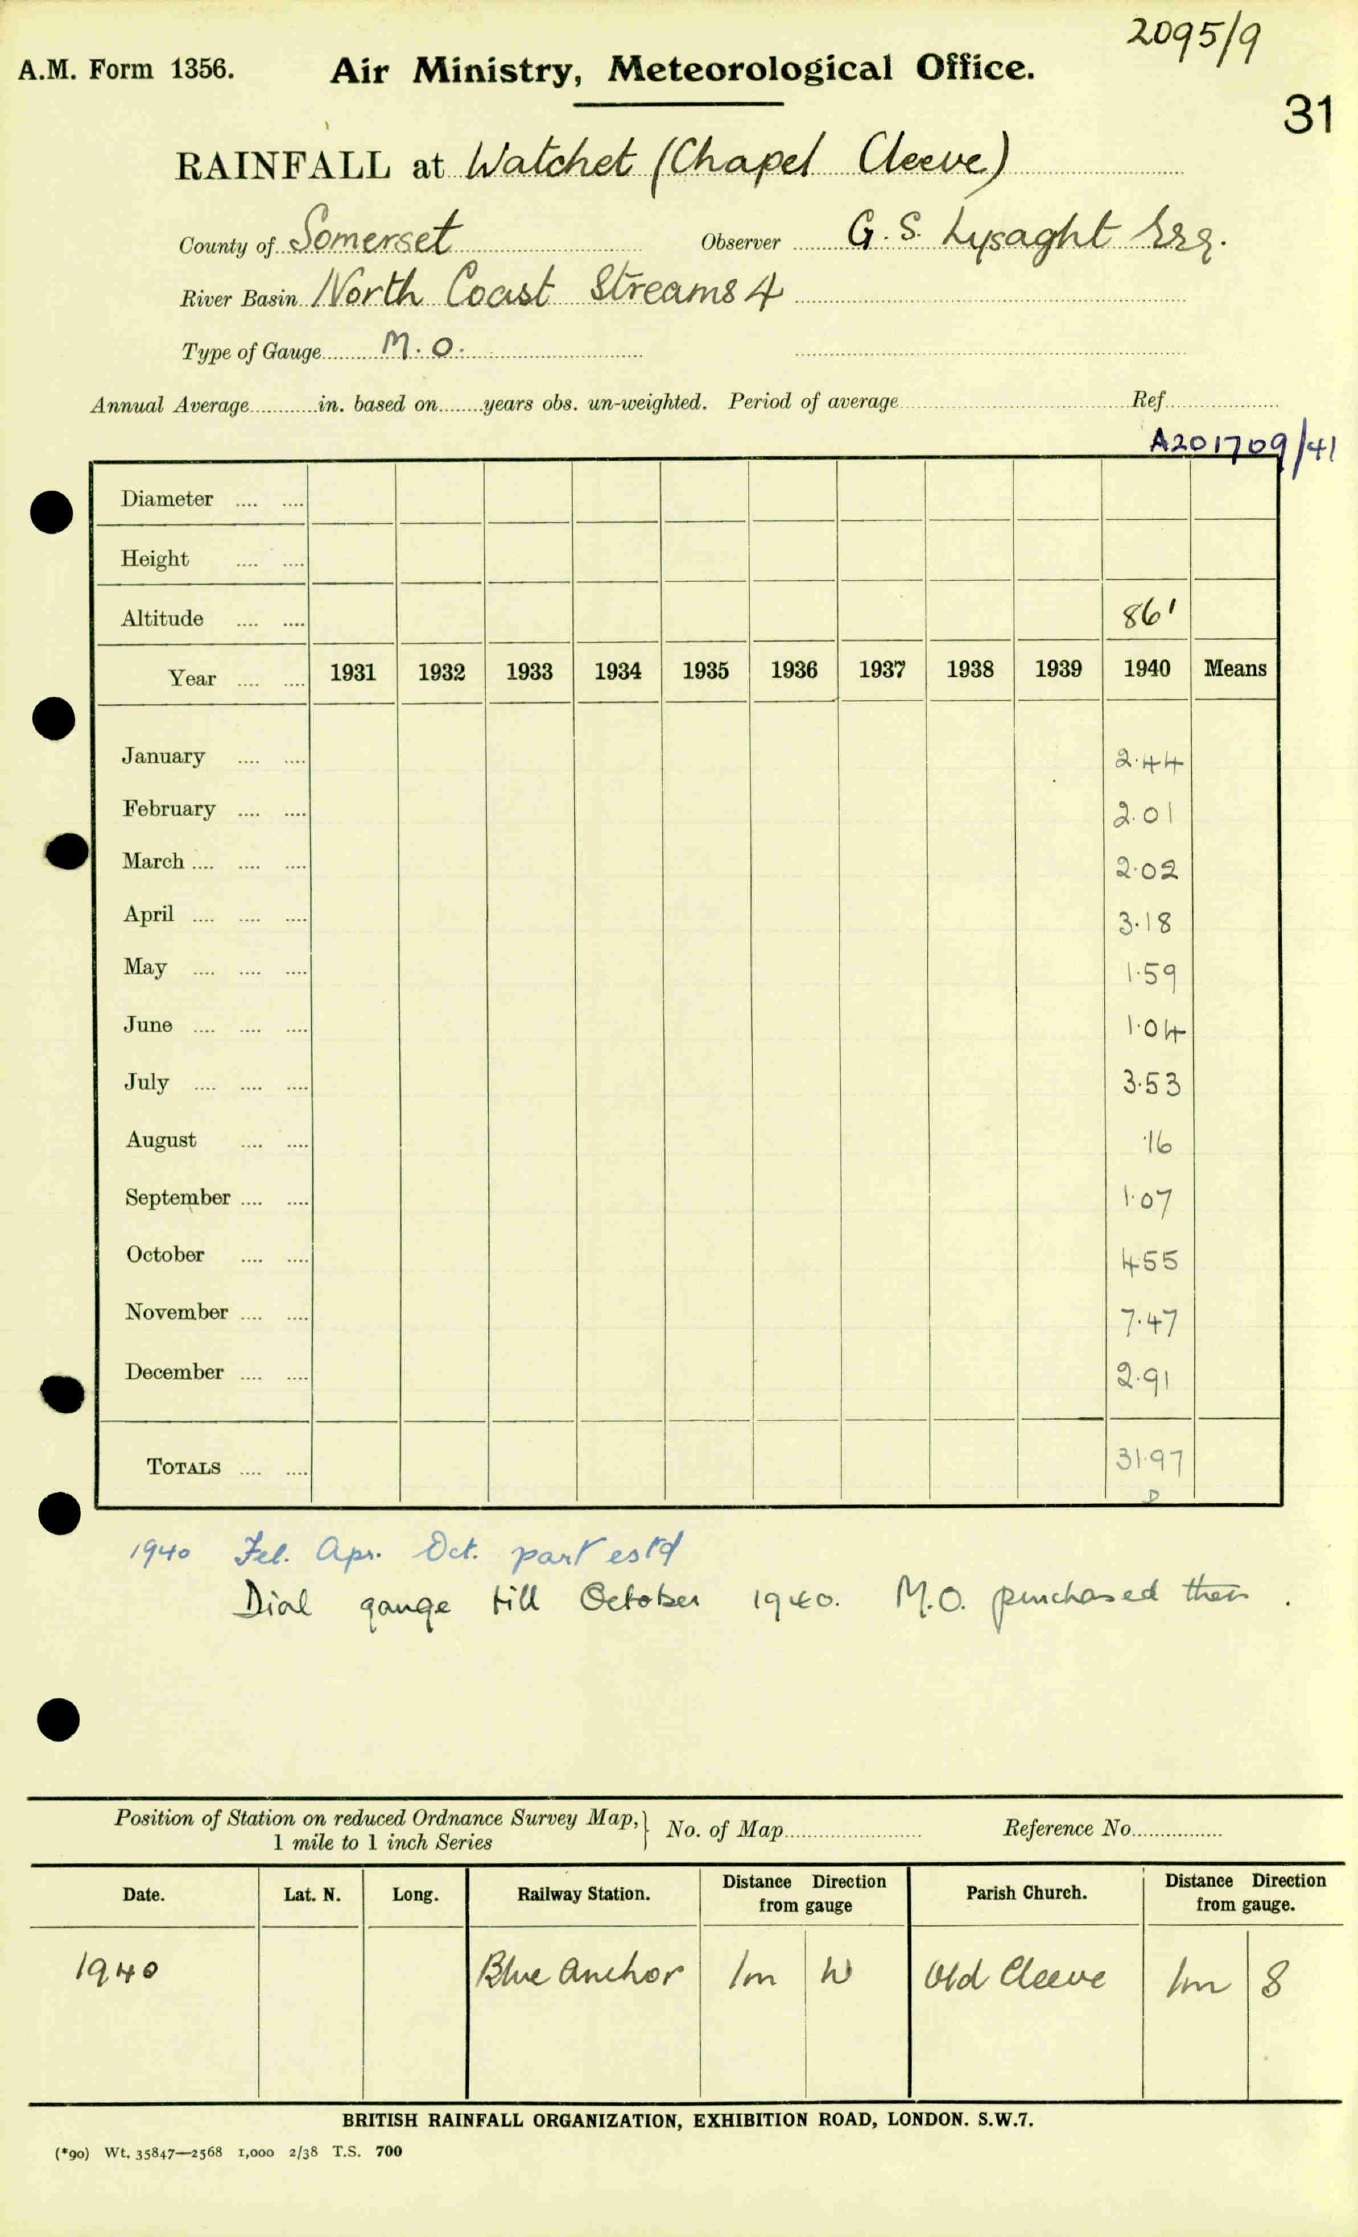 2095/9
A.M. Form 1356. Air Ministry, Meteorological Office.
31
RAINFALL at Watchet (Chapel Cleeve)
County of Somerset Observer G. S. Lysaght Esq.
River Basin North Coast Streams 4
Type of Gauge M.O.
Annual Average in. based on years obs. un-weighted. Period of average Ref.
A201709/41
Diameter
Height
Altitude 86'
Year 1931 1932 1933 1934 1935 1936 1937 1938 1939 1940 Means
January 2.44
February 2.01
March 2.02
April 3.18
May 1.59
June 1.04
July 3.53
August .16
September 1.07
October 4.55
November 7.47
December 2.91
TOTALS 31.97
D
1940 Feb. Apr. Oct. part est'd
Dial gauge till October 1940. M.O. purchased then.
Position of Station on reduced Ordnance Survey Map, } No. of Map Reference No.
1 mile to 1 inch Series
Date. Lat. N. Long. Railway Station. Distance Direction from gauge Parish Church. Distance Direction from gauge.
1940 Blue Anchor 1m W Old Cleeve 1m S
BRITISH RAINFALL ORGANIZATION, EXHIBITION ROAD, LONDON. S.W.7.
(*90) Wt. 35847—2568 1,000 2/38 T.S. 700